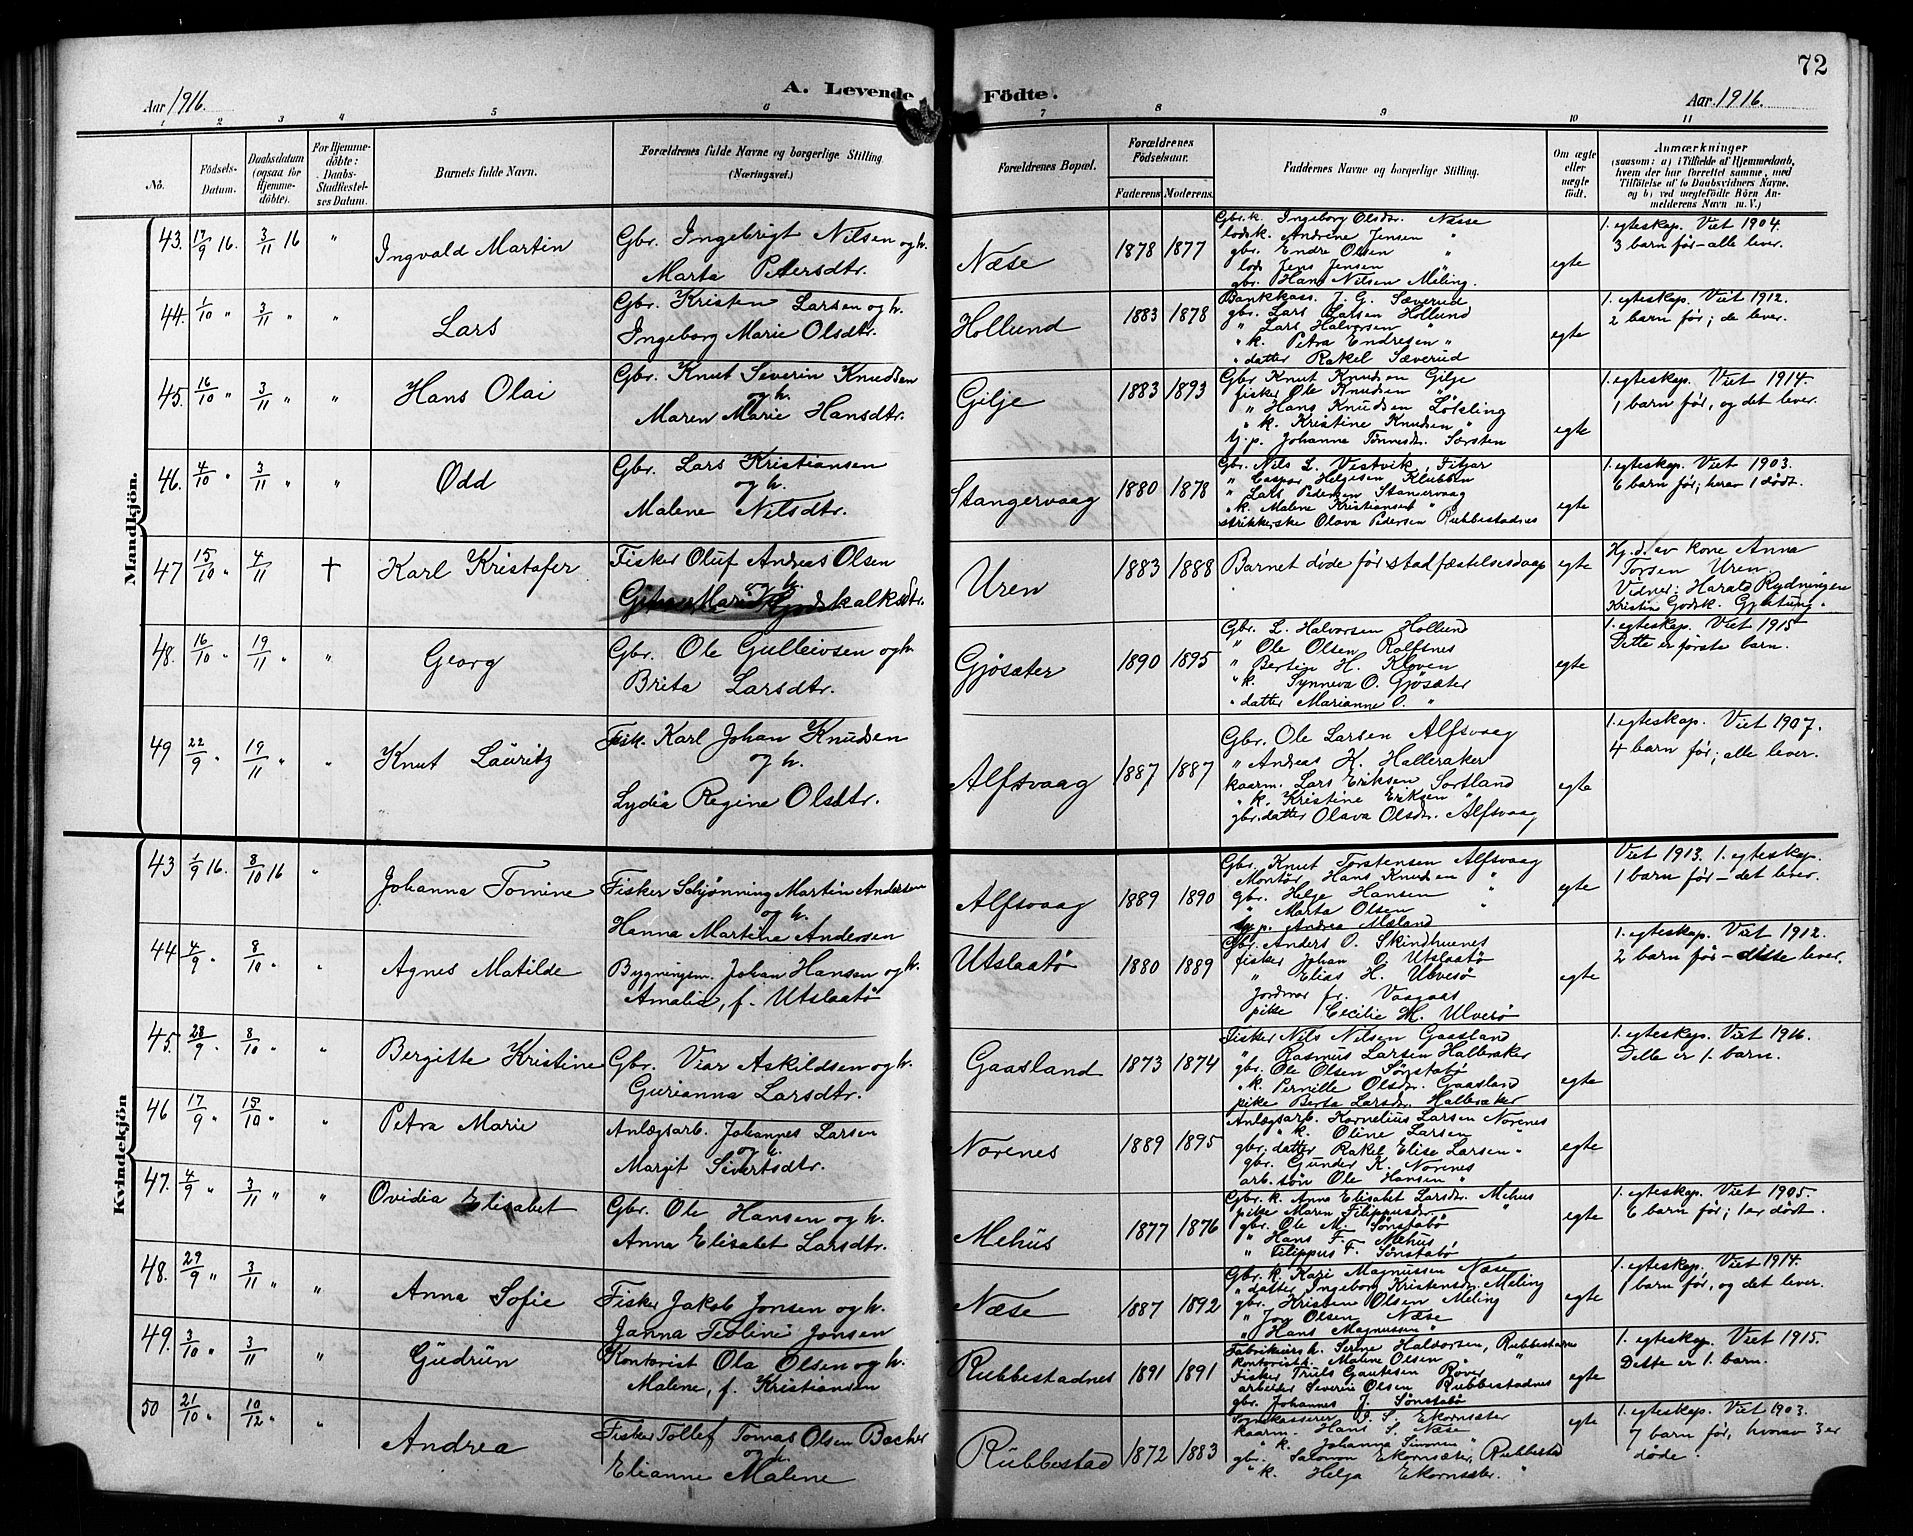 72
Aar 1916. A. Levende Födte. Aar 1916.
1 2 3 4 5 6 7 8 9 10 11
No.
Födsels-
Datum.
Daabsdatum
(ogsaa for
Hjemme-
döbte).
For Hjemme-
döbte:
Daabs-
Stadfæstel-
ses Datum.
Barnets fulde Navn.
Forældrenes fulde Navne og borgerlige Stilling
(Næringsvei.)
Forældrenes Bopæl.
Forældrenes
Födselsaar.
Faderens Moderens
Faddernes Navne og borgerlige Stilling.
Om ægte
eller
uægte
födt.
Anmærkninger
(saasom: a) i Tilfælde af Hjemmedaab,
hvem der har forrettet samme, med
Tilföielse af to Daabsvidners Navne,
og b) ved uægtefödte Börn An-
melderens Navn m. V.)
Mandkjön.
43. 17/9 16. 3/11 16 " Ingvald Martin
Gbr. Ingebrigt Nilsen og h.
Marta Petersdtr.
Næse 1878 1877
Gbr. k. Ingeborg Olsdr. Næse
lodsk. Andrine Jensen "
gbr. Endre Olsen "
lods Jens Jensen "
gbr. Hans Nilsen Meling.
egte
1. egteskap. Viet 1904.
3 barn før - alle lever.
44. 1/10 " 3/11 " " Lars
Gbr. Kristen Larsen og h.
Ingeborg Marie Olsdtr.
Hollund 1883 1878
Bankkass. J. G. Sæverud
gbr. Lars Larsen Hollund
" Lars Halvorsen "
" k. Petra Endresen "
" datter Rakel Sæverud
egte
1. egteskap. Viet 1912.
2 barn før; de lever.
45. 16/10 " 3/11 " " Hans Olai
Gbr. Knut Severin Knudsen
og h.
Maren Marie Hansdtr.
Gilje 1883 1893
Gbr Knut Knudsen Gilje
fisker Ole Knudsen
" Hans Knudsen Løkling
" k. Kristine Knudsen "
tj. p. Johanna Tønnesdr. Særsten
egte
1. egteskap. Viet 1914.
1 barn før, og det lever.
46. 4/10 " 3/11 " " Odd
Gbr. Lars Kristiansen
og h.
Malene Nilsdtr.
Stangervaag 1880 1878
Gbr. Nils L. Vestvik, Fitjar
" Caspar Helgesen Klubben
" Lars Pedersen Stangervaag
" k. Malene Kristiansen "
strikkerske Olava Pedersen Rubbestadnes
egte
1. egteskap. Viet 1903.
6 barn før; herav 1 dødt.
47 15/10 " 4/11 † Karl Kristofer
Fisker Oluf Andreas Olsen
og h.
Uren 1883 1888
Barnet døde før stadfæstelsesdaap
egte
Hj. d. av kone Anna
Torsen Uren.
Vidner: Harald Rydningen
Kristin Godsk. Gjøtung.
48. 16/10 " 19/11 " " Georg
Gbr. Ole Gulleivsen og h.
Brita Larsdtr.
Gjøsæter 1890 1895
Gbr. L. Halvorsen Hollund
" Ole Olsen Rolfsnes
" Bertin H. Kloven
" k. Synneva O. Gjøsæter
" datter Marianne O. "
egte
1. egteskap. Viet 1915
Dette er første barn.
49 22/9 " 19/11 " " Knut Lauritz
Fisk. Karl Johan Knudsen
og h.
Lydia Regine Olsdtr.
Alfsvaag 1887 1887
Gbr. Ole Larsen Alfsvaag
" Andreas K. Halleraker
kaarm. Lars Eriksen Sortland
" k. Kristine Eriksen "
gbr. datter Olava Olsdr. Alfsvaag
egte
1. egteskap. Viet 1907.
4 barn før; alle lever.
Kvindekjön
43 1/9 16. 8/10 16 " Johanna Tomine
Fisker Schjønning Martin Andersen
og h.
Hanna Martine Andersen
Alfsvaag 1889 1890
Gbr. Knut Torstensen Alfsvaag
Montør Hans Knudsen "
gbr. Helge Hansen "
" Marta Olsen
tj. p. Andrea Mæland
egte
Viet 1913. 1. egteskap.
1 barn før - det lever.
44 4/9 " 8/10 " " Agnes Matilde
Bygningsm. Johan Hansen og h.
Amalia, f. Utslaatø
Utslaatø 1880 1889
Gbr. Anders O. Skindhuenes
fisker Johan O. Utslaatø
" Elias H. Ulvesø
Jordmor fr. Vaagaas
pike Cecilie M. Ulverø
egte
1. egteskap. Viet 1912.
2 barn før - disse lever.
45. 28/9 " 8/10 " " Bergitte Kristine
Gbr. Viar Askildsen og h.
Gurianna Larsdtr.
Gaasland 1873 1874
Fisker Nils Nilsen Gaasland
" Rasmus Larsen Halleraker
gbr. Ole Olsen Sønstabø
" k. Pernille Olsdr. Gaasland
pike Berta Larsdr. Halleraker
egte
1. egteskap. Viet 1916.
Dette er 1. barn.
46 17/9 " 15/10 " " Petra Marie
Anlægsarb. Johannes Larsen
og h.
Margit Sivertsdtr.
Norenes 1889 1895
Anlægsarb. Kornelius Larsen Norenes
" k. Oline Larsen "
gbr. datter Rakel Elise Larsen "
gbr. Gunder K. Norenes
arb. søn Ole Hansen "
egte
47. 4/9 " 3/11 " " Ovidia Elisabet
Gbr. Ole Hansen og h.
Anna Elisabet Larsdtr.
Mehus 1877 1876
Gbr. k. Anna Elisabet Larsdr. Mehus
pike Maren Filippusdr. "
gbr. Ole M. Sønstabø
" Hans F. Mehus
" Filippus F. Sønstabø
egte
1. egteskap. Viet 1905.
6 barn før; 1 er dødt.
48. 29/9 " 3/11 " " Anna Sofie
Fisker Jakob Jonsen og h.
Janna Teoline Jonsen
Næse 1887 1892
Gbr. k. Kari Magnussen Næse
" datter Ingeborg Kristensdr. Meling
gbr. Kristene Olsen Meling
" Joy Olsen Næse
" Hans Magnussen "
egte
1. egteskap. Viet 1914.
1 barn før, og det lever.
49. 3/10 " 3/11 " " Gudrun
Kontorist Ola Olsen og h.
Malene, f. Kristiansen
Rubbestadnes 1891 1891
Fabrikeiersh. Serine Halvorsen, Rubbestadnes
kontoristh. Malene Olsen "
Fisker Truls Gautesen Røver
arbeider Severin Olsen Rubbestadnes
gbr. Johannes J. Sønstabø
egte
1. egteskap. Viet 1915.
Dette er 1. barn.
50 21/10 " 10/12 " " Andrea
Fisker Tollef Tomas Olsen Bacher
og h.
Elianne Malene
Rubbestad 1872 1883
Sognekasserer P. S. Ekornsæter
kaarm. Hans S. Næse
" k. Johanna Simonsen "
gbr. Salomon Ekornsæter, Rubbestad
" k. Helga Ekornsæter. "
egte
1. egteskap. Viet 1903.
7 barn før, hvorav 3 er
døde.